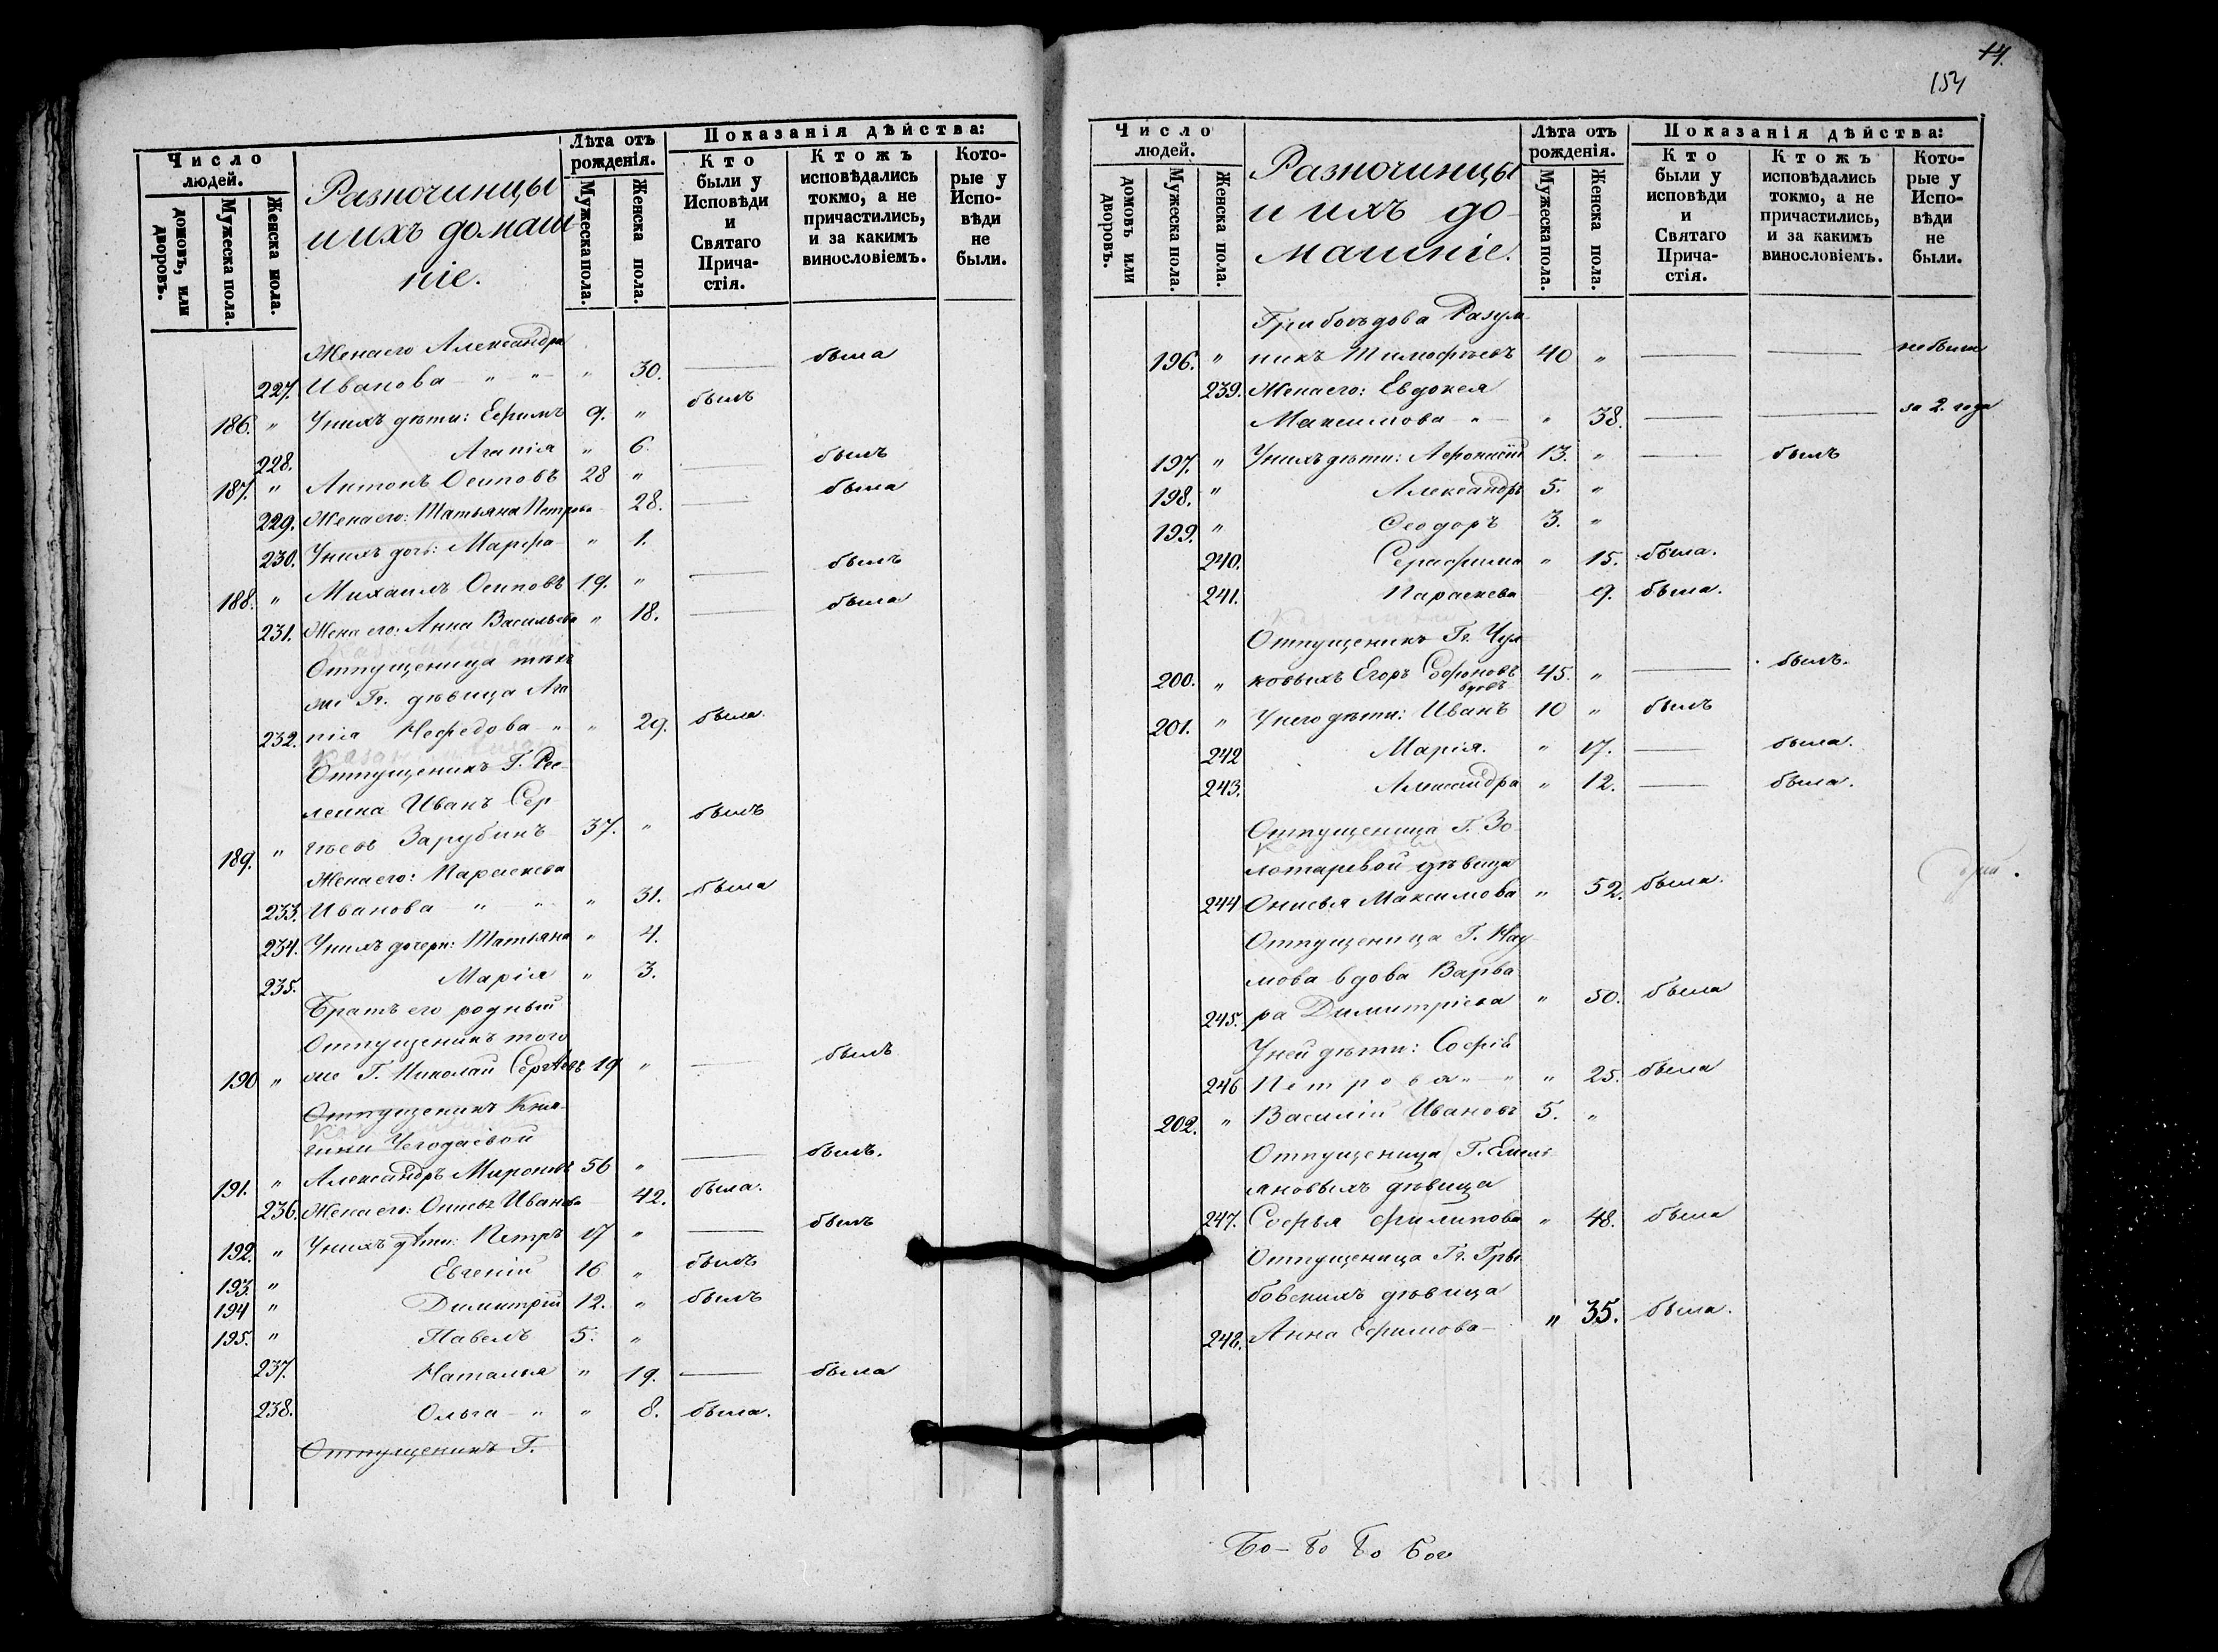 Число людей.
домовъ, или дворовъ.
Мужеска пола.
Женска пола.
Разночинцы
и ихъ домаш
ніе.
Лѣта отъ рожденія.
Мужеска пола.
Женска пола.
Показанія дѣйства:
Кто были у Исповѣди и Святаго Прича- стія.
Ктожъ исповѣдались токмо, а не причастились, и за какимъ винословіемъ.
Кото- рые у Испо- вѣди не были.
Жена его Александра
227. Иванова - " - " 30. — была
186. " У нихъ дѣти: Ефимъ 9. " былъ
228. Агапія " 6.
187. " Антонъ Осиповъ 28 " былъ
229. Жена его: Татьяна Петрова 28. — была
230. У нихъ дочь: Марфа " 1.
188. " Михаилъ Осиповъ 19. " — былъ
231. Жена его: Анна Васильева " 18. — была
Отпущеница тѣхъ
же Гг. дѣвица Ага
232. пія Нефедова " " 29. была.
Отпущеникъ Г.
Иванъ Сер
189. " гѣевъ Зарубинъ 37. " былъ
Жена его: Параскева
233. Иванова " " " 31. была
234. У нихъ дочери: Татьяна " 4.
235. Марія " 3.
Братъ его родный
Отпущеникъ того
190 " же Г. Николай Сергѣевъ 19 " — былъ
Отпущеникъ Кня-
гини Чегодаевой
191. " Александръ Мироновъ 56 " — былъ.
236. Жена его: Онисья Иванова 42. была.
192. " У нихъ дѣти: Петръ 17 " — былъ
193. " Евгеній 16 " былъ
194 " Димитрій 12. " былъ
195. " Павелъ 5. "
237. Наталья " 19. — была
238. Ольга - " " 8. была.
Отпущеникъ Г.
14.
154
Число людей.
домовъ или дворовъ.
Мужеска пола.
Женска пола.
Разночинцы
и ихъ до-
машніе.
Лѣта отъ рожденія.
Мужеска пола.
Женска пола.
Показанія дѣйства:
Кто были у исповѣди и Святаго Прича- стія.
Ктожъ исповѣдались токмо, а не причастились, и за какимъ винословіемъ.
Кото- рые у Испо- вѣди не были.
Грибоѣдова Разум-
196. " никъ Тимофѣевъ 40 " — — не были
239. Жена его: Евдокея
Максимова - " - " 38. — — за 2. года
197. " У нихъ дѣти: Афонасій 13. " — былъ
198. " Александръ 5. "
199. " Ѳеодоръ 3. "
240. Серафима " 15. была.
241. Параскева 9. была.
Отпущеникъ Гг. Чул-
200. " ковыхъ Егоръ Софоновъ 45. " — былъ.
вдовъ
201. " У него дѣти: Иванъ 10 " былъ
242 Марія. " 17. — была.
243. Александра " 12. — была.
Отпущеница Г. Зо-
лотаревой дѣвица
244 Онисья Максимова " 52. была.
Отпущеница Г. Нау-
мова вдова Варва
245. ра Димитріева " 50. была
У ней дѣти: Софія
246 Петрова " - " " 25. была
202. " Василій Ивановъ 5. "
Отпущеница Г. Емель-
яновыхъ дѣвица
247. Софья Филипова " 48. была
Отпущеница Гг. Гры-
бовскихъ дѣвица
248. Анна Ефимова - " 35. была.
Бо- Бо Бо Бог